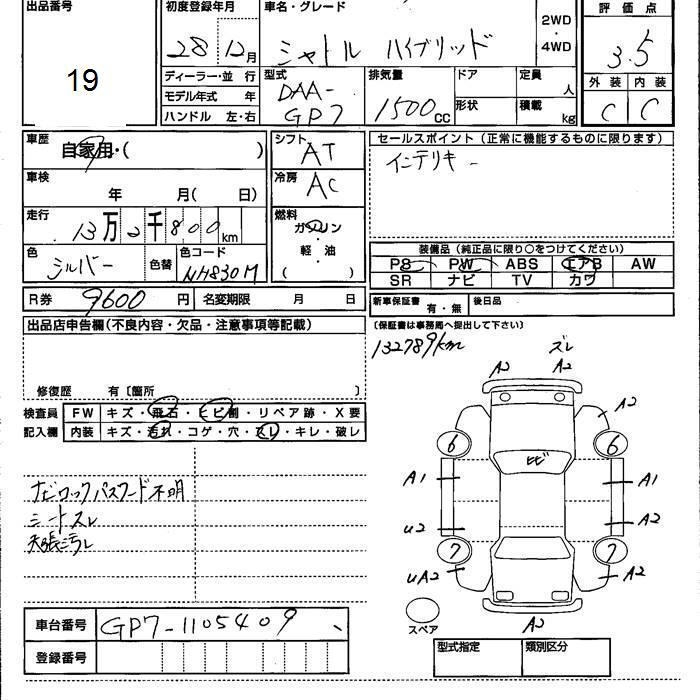 出品番号 初度登録年月 車名・グレード 2WD ・ 4WD 評価点
19 28 12月 シャトル ハイブリッド 3.5
ディーラー・並 行 型式 DAA-GP7 排気量 1500cc ドア 定員 人 外装 内装
モデル年式 年 形状 積載 kg C C
ハンドル 左・右
車歴 自家用・( ) シフト AT セールスポイント (正常に機能するものに限ります)
インテリキー
車検 年 月( 日) 冷房 AC
走行 13万2千800km 燃料 ガソリン 軽・油 ( )
色 シルバー 色替 色コード NH830M
装備品 (純正品に限り○をつけてください)
PS PW ABS エアB AW
SR ナビ TV カワ
R券 9600円 名変期限 月 日 新車保証書 有・無 後日品
出品店申告欄(不良内容・欠品・注意事項等記載) (保証書は事務局へ提出して下さい)
132789km ズレ
A2 A2
修復歴 有〔箇所 〕
検査員 FW キズ・飛石・ヒビ割・リペア跡・X要
記入欄 内装 キズ・汚れ・コゲ・穴・スレ・キレ・破レ
A2
6 6
ヒビ
A1 A1
ナビロックパスワード不明
シートスレ
天張汚レ
U2 A2
7 7
UA2 A2
スペア A2
車台番号 GP7-1105409
登録番号
型式指定 類別区分